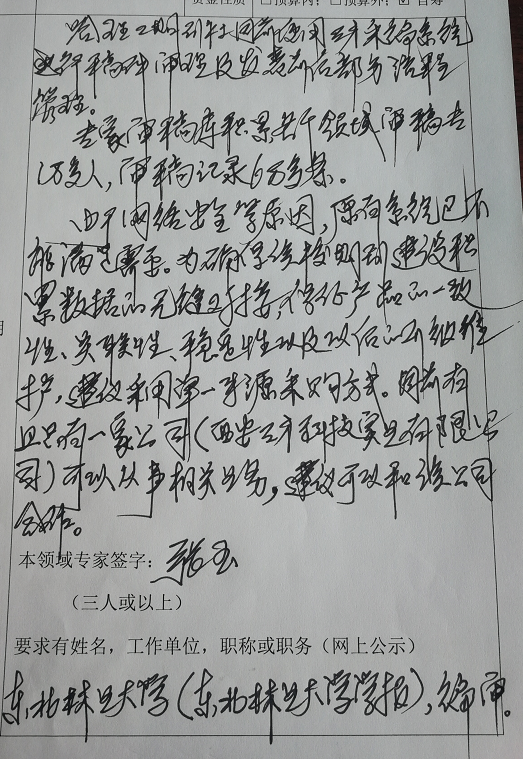 资金性质 □预算内；□预算外；☑自筹
哈理工期刊社目前使用三才采编系统
进行稿件审理及发表前后部分流程
管理。
专家审稿库积累共千领域审稿专
18多人，审稿记录68多条。
由于网络安全等原因，原有系统已不
能满足需要。为确保该校期刊建设积
累数据的无缝对接，保证产品的一致
性、关联性、稳定性以及以后的升级维
护，建议采用单一来源采购方式。目前有
且只有一家公司（西安三才科技实业有限公
司）可以从事相关业务，建议可以和该公司
合作。
本领域专家签字：张玉
（三人或以上）
要求有姓名，工作单位，职称或职务（网上公示）
东北林业大学（东北林业大学学报），编审。